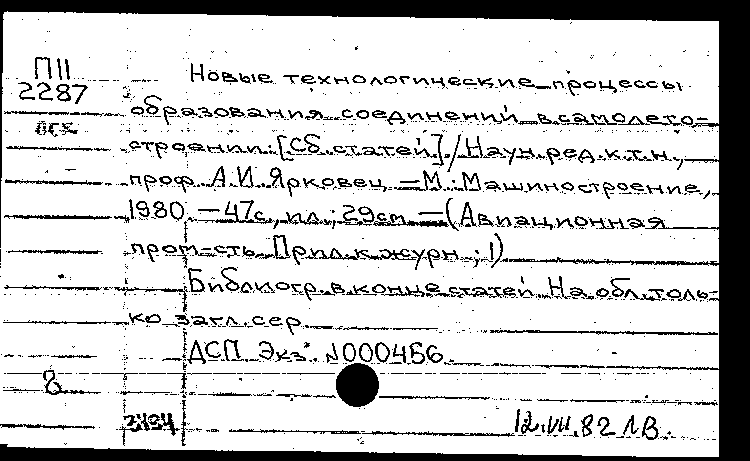 П11
2287
Новые технологические процессы
образования соединений в самолето-
строении: [Сб. статей]. / Научн. ред. к.т.н.,
проф. А.И. Ярковец. — М.: Машиностроение,
1980. — 47с., ил.; 29см. — (Авиационная
пром-сть. Прил. к журн.; 1)
Библиогр. в конце статей. На обл. толь-
ко загл. сер.
ДСП Экз. №000456.
8
3434
12.VII.82 ЛВ.